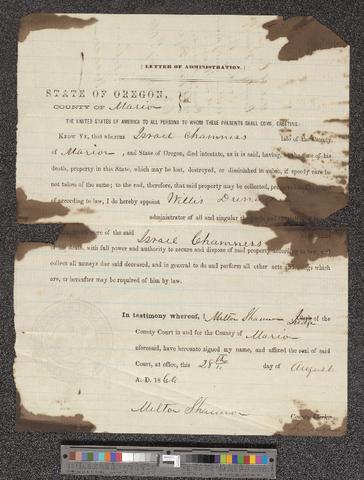 [LETTER OF ADMINISTRATION.]
STATE OF OREGON,
COUNTY OF Marion
THE UNITED STATES OF AMERICA TO ALL PERSONS TO WHOM THESE PRESENTS SHALL COME, GREETING:
KNOW YE, that whereas Israel Chamness late of the County
of Marion, and State of Oregon, died intestate, as it is said, having, at the time of his
death, property in this State, which may be lost, destroyed, or diminished in value, if speedy care be
not taken of the same; to the end, therefore, that said property may be collected,
of according to law, I do hereby appoint Willis
administrator of all and singular the
of the said Israel Chamness
death, with full power and authority to secure and dispose of said property according to law,
collect all moneys due said deceased, and in general to do and perform all other acts and things which
are, or hereafter may be required of him by law.
In testimony whereof, I, Milton Shannon Judge of the
County Court in and for the County of Marion
aforesaid, have hereunto signed my name, and affixed the seal of said
Court, at office, this 28th day of August
A. D. 1866
Milton Shannon
County Clerk.